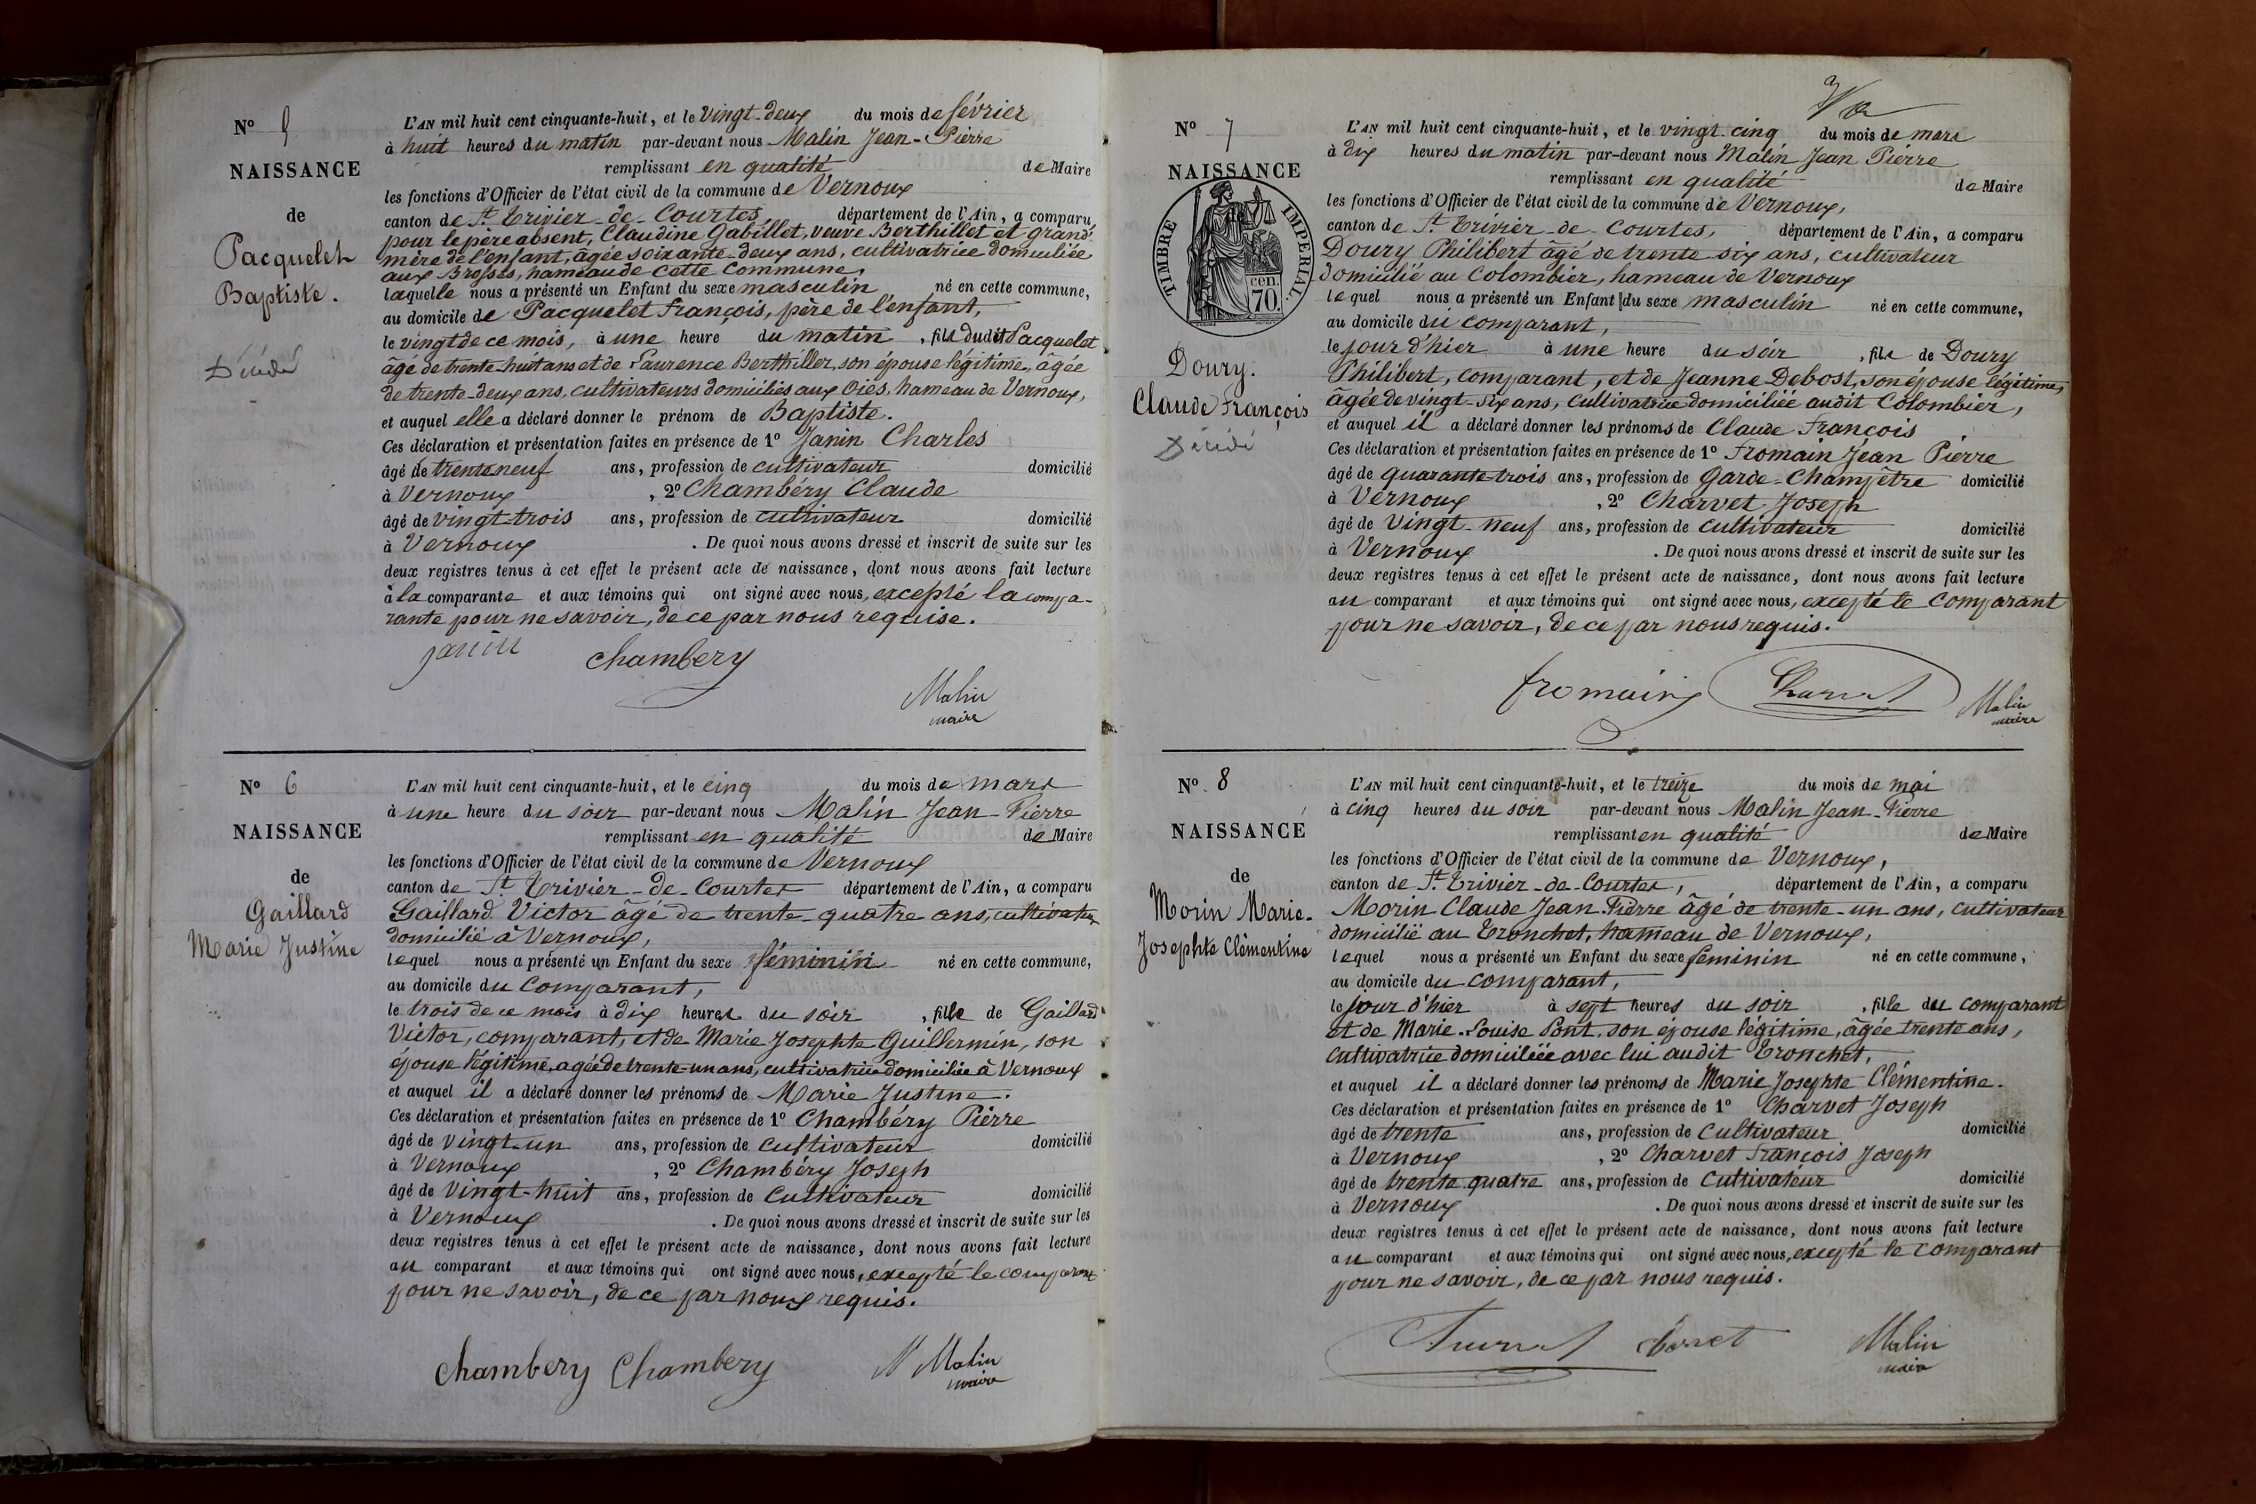 Nº 5
NAISSANCE
de
Pacquelet
Baptiste.
Décédé
L'AN mil huit cent cinquante-huit, et le vingt-deux du mois de février
à huit heures du matin par-devant nous Malin Jean-Pierre
remplissant en qualité de Maire
les fonctions d'Officier de l'état civil de la commune de Vernoux
canton de St Trivier-de-Courtes département de l'Ain, a comparu
pour le père absent, Claudine Gabillet, veuve Berthillet et grand'
mère de l'enfant, âgée soixante-deux ans, cultivatrice domiciliée
aux Brosses, hameau de cette commune,
laquelle nous a présenté un Enfant du sexe masculin né en cette commune,
au domicile de Pacquelet François, père de l'enfant,
le vingt de ce mois, à une heure du matin, fils dudit Pacquelet
âgé de trente-huit ans et de Laurence Berthiller, son épouse légitime, âgée
de trente-deux ans, cultivateurs domiciliés aux Oiés, hameau de Vernoux,
et auquel elle a déclaré donner le prénom de Baptiste.
Ces déclaration et présentation faites en présence de 1º Janin Charles
âgé de trente neuf ans, profession de cultivateur domicilié
à Vernoux, 2º Chambéry Claude
âgé de vingt-trois ans, profession de cultivateur domicilié
à Vernoux. De quoi nous avons dressé et inscrit de suite sur les
deux registres tenus à cet effet le présent acte de naissance, dont nous avons fait lecture
à la comparante et aux témoins qui ont signé avec nous, excepté la compa-
rante pour ne savoir, de ce par nous requise.
janin chambery
Malin
maire
Nº 6
NAISSANCE
de
Gaillard
Marie Justine
L'AN mil huit cent cinquante-huit, et le cinq du mois de mars
à une heure du soir par-devant nous Malin Jean-Pierre
remplissant en qualité de Maire
les fonctions d'Officier de l'état civil de la commune de Vernoux
canton de St Trivier-de-Courtes département de l'Ain, a comparu
Gaillard Victor âgé de trente-quatre ans, cultivateur
domicilié à Vernoux,
lequel nous a présenté un Enfant du sexe féminin né en cette commune,
au domicile du comparant,
le trois de ce mois à dix heures du soir, fille de Gaillard
Victor, comparant, et de Marie Josephte Guillermin, son
épouse légitime, agée de trente-un ans, cultivatrice domiciliée à Vernoux
et auquel il a déclaré donner les prénoms de Marie Justine.
Ces déclaration et présentation faites en présence de 1º Chambéry Pierre
âgé de vingt-un ans, profession de cultivateur domicilié
à Vernoux, 2º Chambéry Joseph
âgé de vingt-huit ans, profession de cultivateur domicilié
à Vernoux. De quoi nous avons dressé et inscrit de suite sur les
deux registres tenus à cet effet le présent acte de naissance, dont nous avons fait lecture
au comparant et aux témoins qui ont signé avec nous, excepté le comparant
pour ne savoir, de ce par nous requis.
chambery Chambery Malin
maire
Nº 7
NAISSANCE
TIMBRE IMPERIAL.
cen.
70.
Doury.
Claude François
Décédé
L'AN mil huit cent cinquante-huit, et le vingt-cinq du mois de mars
à dix heures du matin par-devant nous Malin Jean Pierre
remplissant en qualité de Maire
les fonctions d'Officier de l'état civil de la commune de Vernoux,
canton de St Trivier-de-Courtes, département de l'Ain, a comparu
Doury Philibert âgé de trente-six ans, cultivateur
domicilié au Colombier, hameau de Vernoux
lequel nous a présenté un Enfant du sexe masculin né en cette commune,
au domicile du comparant,
le jour d'hier à une heure du soir, fils de Doury
Philibert, comparant, et de Jeanne Debost, son épouse légitime,
âgée de vingt-six ans, cultivatrice domiciliée audit Colombier,
et auquel il a déclaré donner les prénoms de Claude François
Ces déclaration et présentation faites en présence de 1º Fromain Jean Pierre
âgé de quarante-trois ans, profession de Garde-Champêtre domicilié
à Vernoux, 2º Charvet Joseph
âgé de vingt-neuf ans, profession de cultivateur domicilié
à Vernoux. De quoi nous avons dressé et inscrit de suite sur les
deux registres tenus à cet effet le présent acte de naissance, dont nous avons fait lecture
au comparant et aux témoins qui ont signé avec nous, excepté le comparant
pour ne savoir, de ce par nous requis.
fromain Charvet Malin
maire
Nº 8
NAISSANCE
de
Morin Marie-
Josephte Clémentine
L'AN mil huit cent cinquante-huit, et le treize du mois de mai
à cinq heures du soir par-devant nous Malin Jean-Pierre
remplissant en qualité de Maire
les fonctions d'Officier de l'état civil de la commune de Vernoux,
canton de St Trivier-de-Courtes, département de l'Ain, a comparu
Morin Claude Jean Pierre âgé de trente-un ans, cultivateur
domicilié au Tronchet, hameau de Vernoux,
lequel nous a présenté un Enfant du sexe féminin né en cette commune,
au domicile du comparant,
le jour d'hier à sept heures du soir, fille du comparant
et de Marie-Louise Pont, son épouse légitime, âgée trente ans,
cultivatrice domiciliée avec lui audit Tronchet,
et auquel il a déclaré donner les prénoms de Marie Josephte Clémentine.
Ces déclaration et présentation faites en présence de 1º Charvet Joseph
âgé de trente ans, profession de cultivateur domicilié
à Vernoux, 2º Charvet François Joseph
âgé de trente quatre ans, profession de cultivateur domicilié
à Vernoux. De quoi nous avons dressé et inscrit de suite sur les
deux registres tenus à cet effet le présent acte de naissance, dont nous avons fait lecture
au comparant et aux témoins qui ont signé avec nous, excepté le comparant
pour ne savoir, de ce par nous requis.
Malin
maire